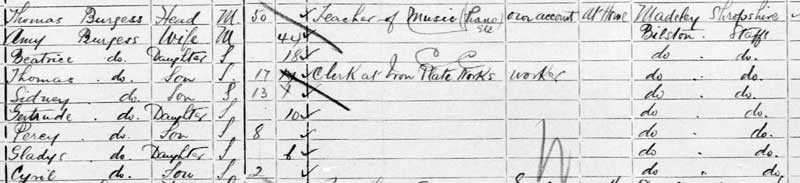 Thomas Burgess Head M. 50 Teacher of Music (Piano &c own account At Home Madeley Shropshire
Amy Burgess Wife M 44 Bilston . Staffs
Beatrice do. Daughter S. 18 do . do.
Thomas . do. Son S. 17 Clerk at Iron Plate Works worker do . do.
Sidney do. Son S. 13 do . do.
Gertrude . do. Daughter S. 10 do . do.
Percy . do. Son S. 8 do . do.
Gladys . do. Daughter S. 6 do . do.
Cyril do. Son S. 2 do . do.